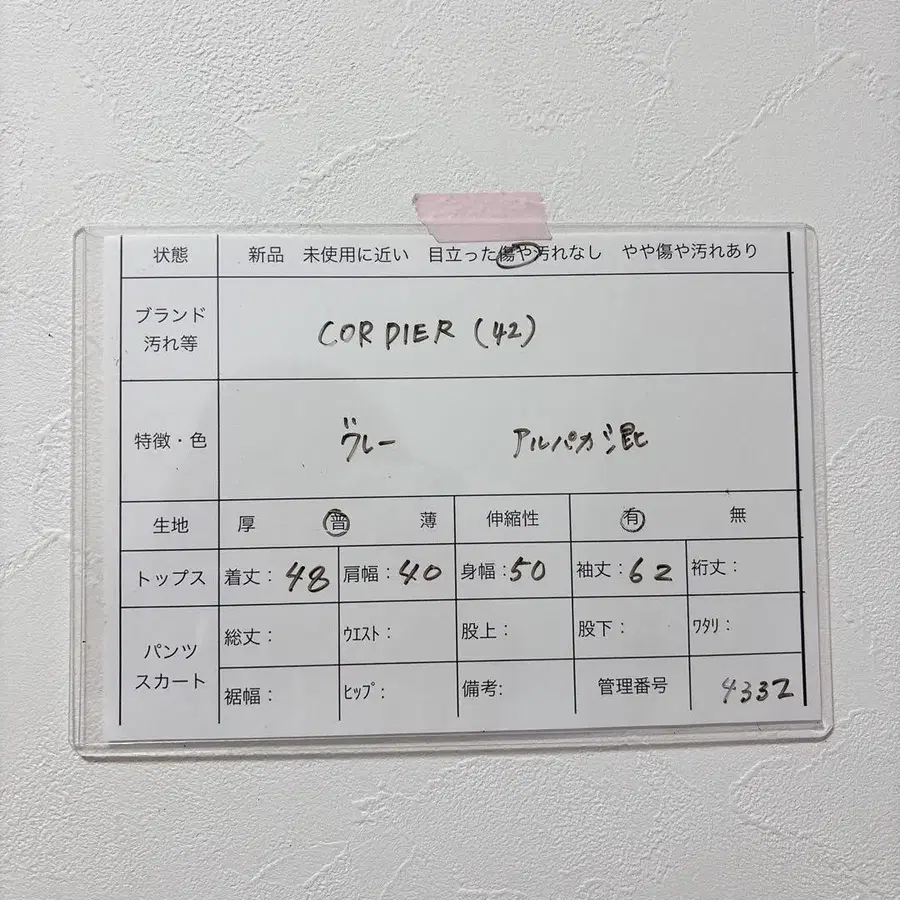 状態 新品 未使用に近い 目立った傷や汚れなし やや傷や汚れあり
ブランド
汚れ等
CORDIER (42)
特徴・色 グレー アルパカ混
生地 厚 普 薄 伸縮性 有 無
トップス 着丈：48 肩幅：40 身幅：50 袖丈：62 裄丈：
パンツ
スカート
総丈： ｳｴｽﾄ： 股上： 股下： ﾜﾀﾘ：
裾幅： ﾋｯﾌﾟ： 備考: 管理番号 4332